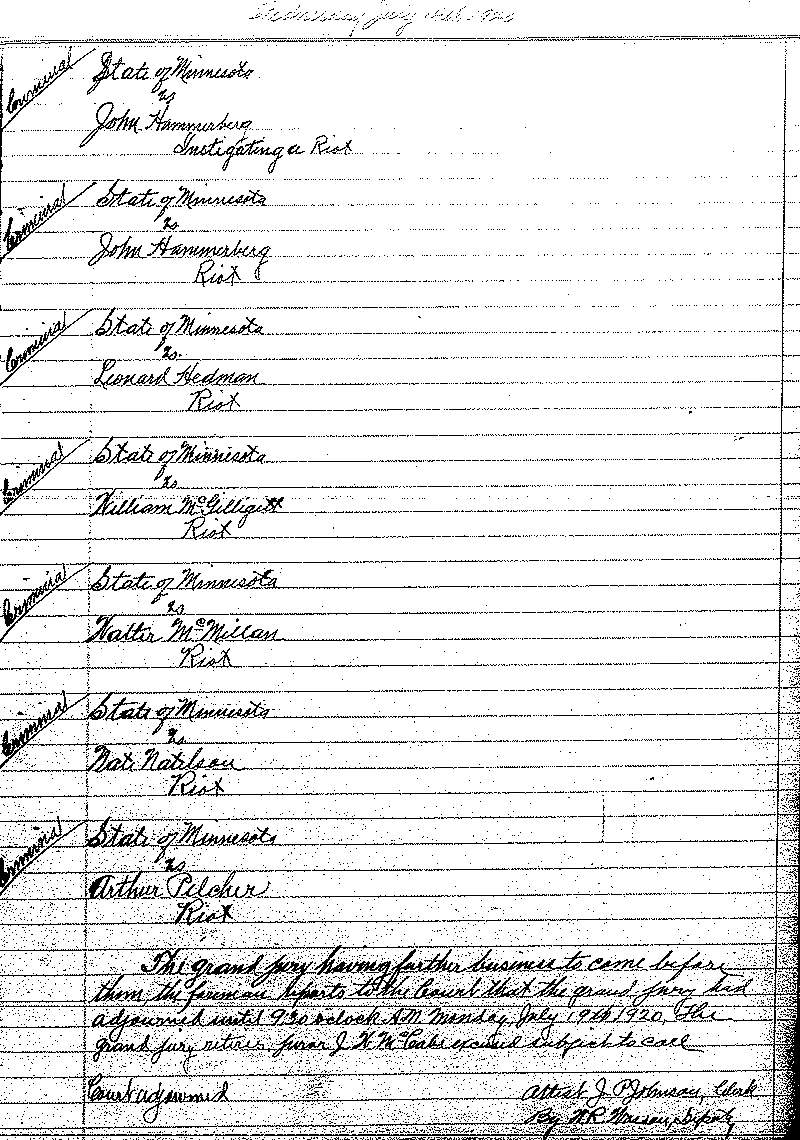 Wednesday July 14th 1920
Criminal
State of Minnesota
vs
John Hammerberg
Instigating a Riot
Criminal
State of Minnesota
vs
John Hammerberg
Riot
Criminal
State of Minnesota
vs.
Leonard Hedman
Riot
Criminal
State of Minnesota
vs
William McGilligitt
Riot
Criminal
State of Minnesota
vs
Walter McMillan
Riot
Criminal
State of Minnesota
vs
Nate Natelson
Riot
Criminal
State of Minnesota
vs
Arthur Pilcher
Riot
The grand jury having further business to come before
them the foreman reports to the Court that the grand jury had
adjourned until 930 oclock AM Monday July 19th 1920. The
grand jury retires juror J. McCabe excused subject to call
Court adjourned
Attest J. P. Johnson, Clerk
By Deputy